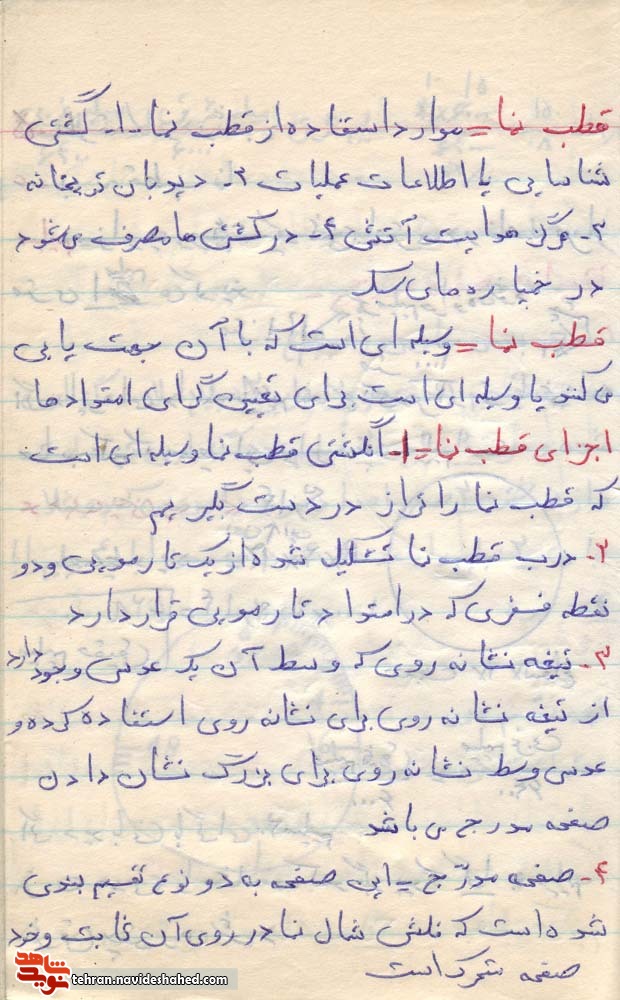 قطب نما = موارد استفاده از قطب نما - ۱- گشتی
شناسایی یا اطلاعات عملیات ۲- دیدبان توپخانه
۳- مرکز هدایت آتش ۴- در کشتی ها مصرف می شود
در خمپاره های سبک
قطب نما = وسیله ای است که با آن جهت یابی
می کنند یا وسیله ای است برای تعیین گرای امتدادها
اجزای قطب نما = ۱- انگشتی قطب نما وسیله ای است
که قطب نما را تراز در دست بگیریم
۲- درب قطب نما تشکیل شده از یک تار مویی و دو
نقطه فسفری که در امتداد تار مویی قرار دارد
۳- تیغه نشانه روی که وسط آن یک عدسی وجود دارد
از تیغه نشانه روی برای نشانه روی استفاده کرده و
عدسی وسط نشانه روی برای بزرگ نشان دادن
صفحه مدرج می باشد
۴- صفحه مدرّج = این صفحه به دو نوع تقسیم بندی
شده است که فلش شمال نما در روی آن ثابت و خود
صفحه متحرک است
نوید شاهد
tehran.navideshahed.com